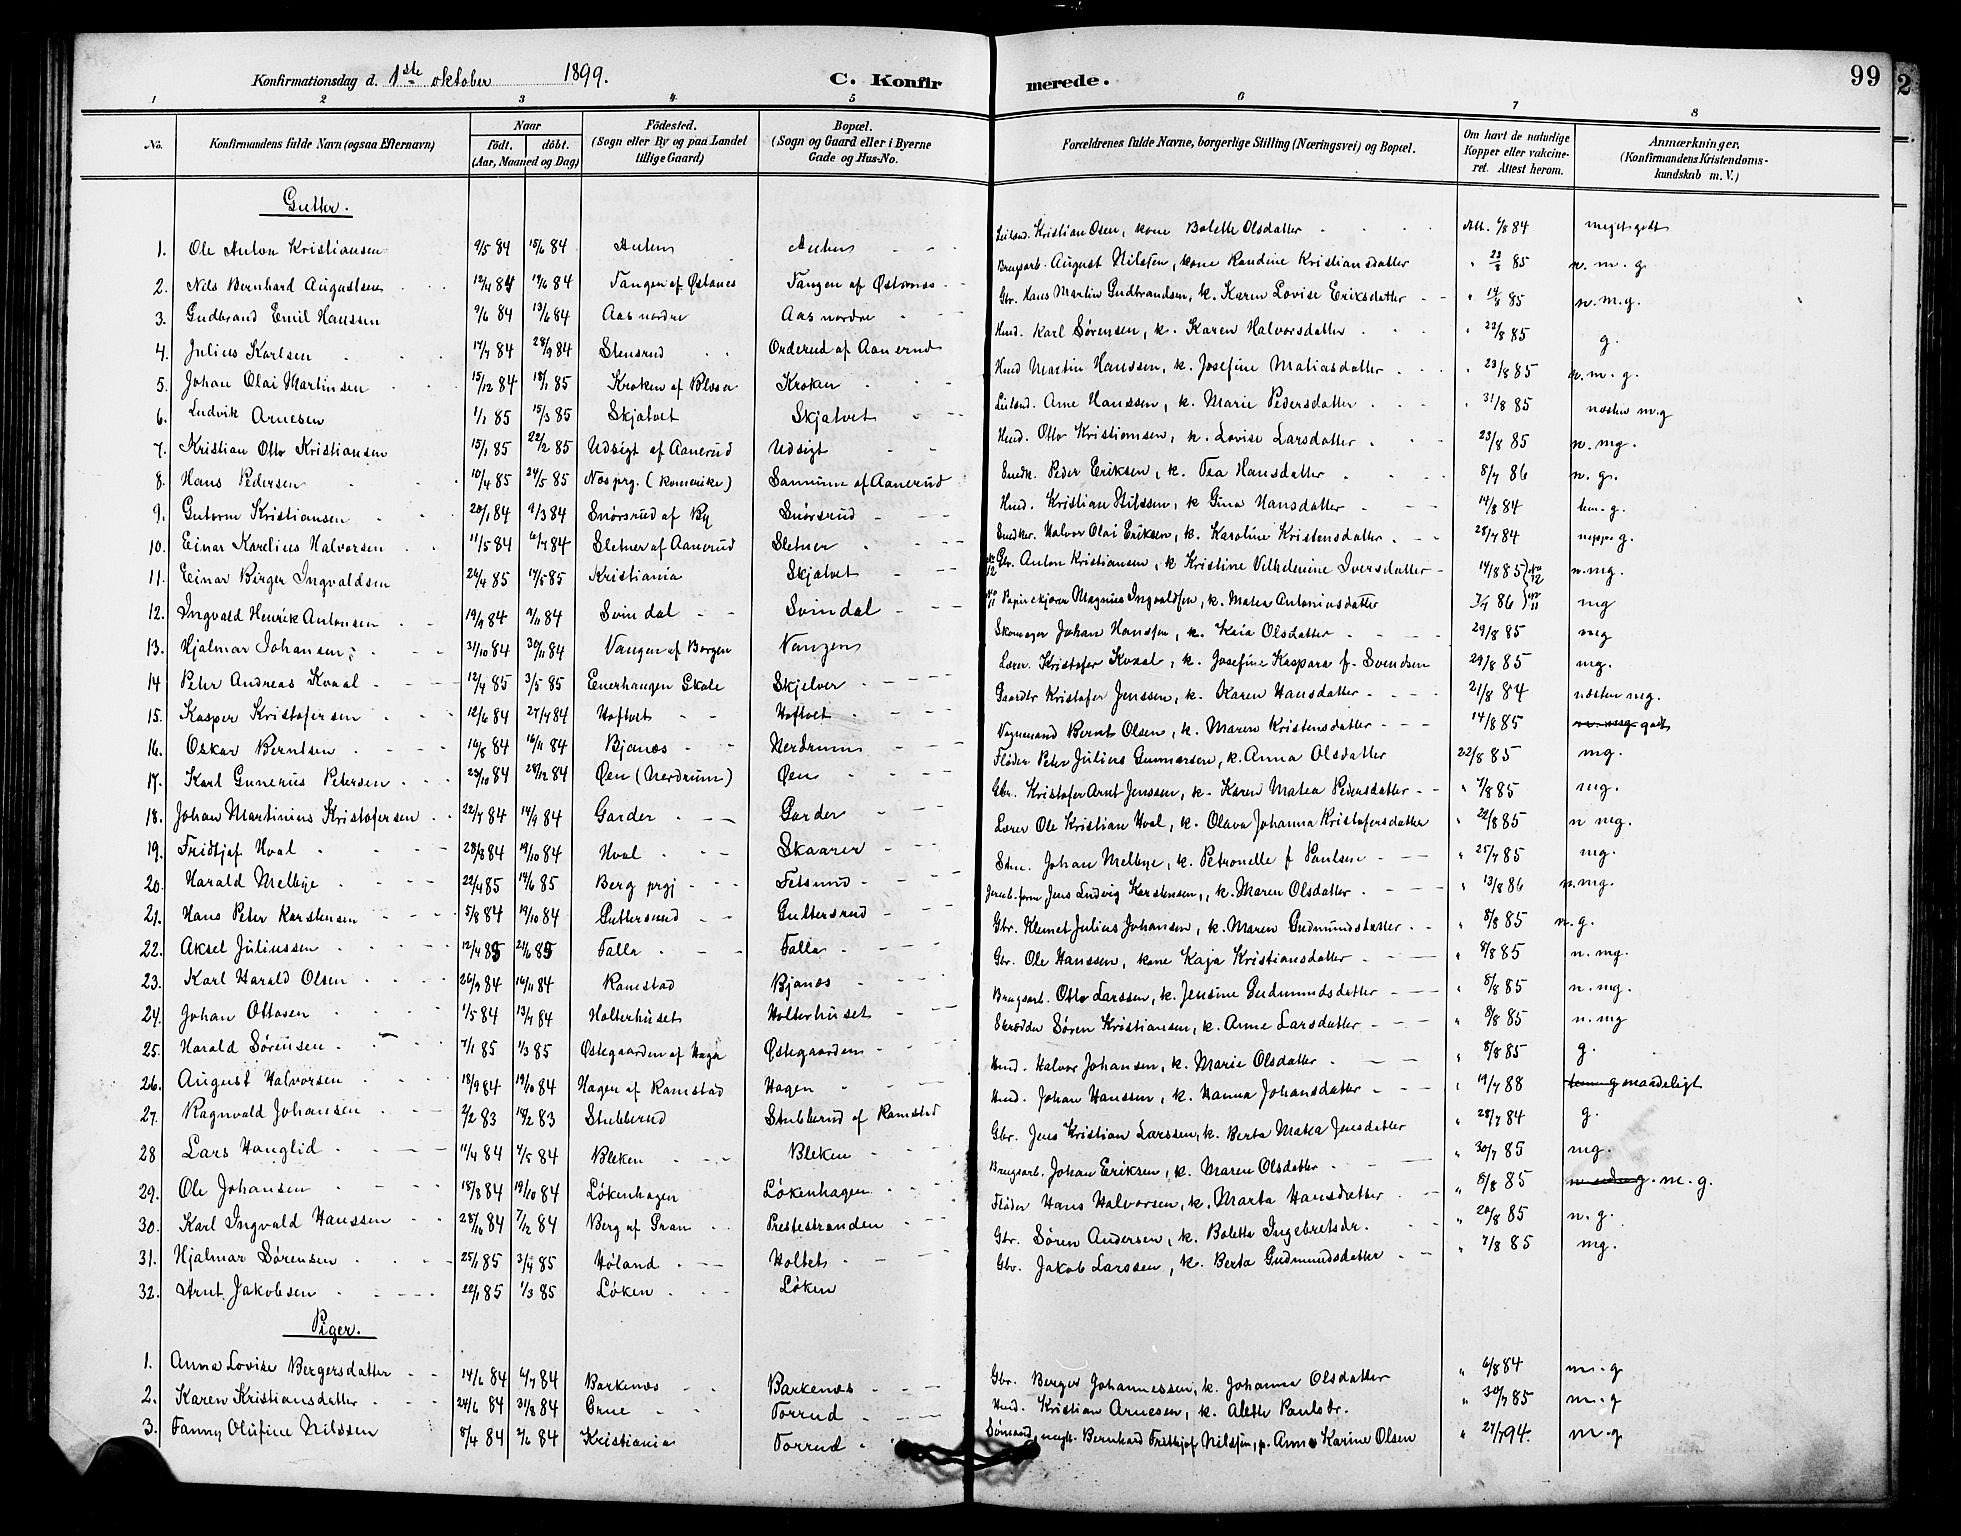 Konfirmationsdag d. 1ste oktober 1899. C. Konfirmerede. 99
1 2 3 4 5 6 7 8
No. Konfirmandens fulde Navn (ogsaa Efternavn) Naar födt. döbt. (Aar, Maaned og Dag) Födested. (Sogn eller By og paa Landet tillige Gaard) Bopæl. (Sogn og Gaard eller i Byerne Gade og Hus-No. Forældrenes fulde Navne, borgerlige Stilling (Næringsvei) og Bopæl. Om havt de naturlige Kopper eller vakcineret. Attest herom. Anmærkninger. (Konfirmandens Kristendomskundskab m. V.)
Gutter.
1. Ole Anton Kristiansen 9/5 84 15/6 84 Kristian Osen, kone Bolette Olsdatter Att. 6/8 84 meget godt
2. Nils Bernhard Augustsen 12/4 84 14/6 84 Tangen af Østanes Tangen af Østanes Brugsarb. August Nilssen, kone Randine Kristiansdatter " 23/8 85 n. m. g.
3. Gudbrand Emil Hanssen 9/6 84 13/6 84 Aas nordre Aas nordre Gbr. Hans Martin Gudbrandsen, k. Karen Lovise Eriksdatter " 14/8 85 n. m. g.
4. Julius Karlsen 17/7 84 28/9 84 Stensrud Orderud af Aanerud Hmd. Karl Sørensen, k. Karen Halvorsdatter " 22/8 85 g.
5. Johan Olai Martinsen 15/12 84 18/1 85 Kroken af Blesser Kroken Hmd Martin Hanssen, k. Josefine Matiasdatter " 23/8 85 n. m. g.
6. Ludvik Arnesen 1/1 85 15/3 85 Skjatvet Skjatvet Leilænd. Arne Hanssen, k. Marie Pedersdatter " 31/8 85 næsten m.g
7. Kristian Otto Kristiansen 15/1 85 22/2 85 Udsigt af Aanerud Udsigt Hmd. Otto Kristiansen, k. Lovise Larsdatter 23/8 85 n. mg.
8. Hans Pedersen 10/4 85 24/5 85 Næs prg. (Romerike) Sannum af Aanerud Snedk. Peder Eriksen, k. Tea Hansdatter 8/7 86 n. g.
9. Gutorm Kristiansen 20/1 84 9/3 84 Snörsrud af By Snörsrud Hmd. Kristian Nilssen, k Gina Hansdatter 14/8 84 tem. g.
10. Einar Karelius Halvorsen 11/5 84 6/7 84 Sletner af Aanerud Sletner Snedker. Halvor Olai Eriksen, k. Karoline Kristensdatter 28/7 84 neppe g.
11. Einar Birger Ingvaldsen 26/4 85 17/5 85 Kristiania Skjatvet No 12 Gbr. Anton Kristiansen, k Kristine Vilhelmine Iversdatter 14/8 85 (No 12 n. mg.
12. Ingvald Henrik Antonsen 19/9 84 9/11 84 Svindal Svindal No 11 Magnus Ingvaldsen, k. Matea Antoniusdatter 7/7 86 (No 11 mg
13. Hjalmar Johansen 31/10 84 30/11 84 Vangen af Borgen Vangen Skomager Johan Hanssen, k. Kaia Olsdatter 29/8 85 mg
14 Peter Andreas Kvaal 12/4 85 3/5 85 Enerhaugen Skole Skjelver Lærer. Kristofer Kvaal, k. Josefine Kaspara f. Svendsen 29/8 85 mg.
15. Kasper Kristofersen 12/6 84 27/7 84 Hoftvet Hoftvet Gaardbr Kristofer Jenssen, k. Karen Hansdatter 21/8 84 næsten mg.
16. Oskar Berntsen 16/8 84 16/11 84 Bjanes Nerdrum Vognmand Bernt Olsen, k. Maren Kristensdatter 14/8 85 godt
17. Karl Gunerius Petersen 23/10 84 28/12 84 Øen (Nerdrum) Øen Fløder Peter Julius Gunnarsen, k. Anna Olsdatter 22/8 85 mg.
18. Johan Martinius Kristofersen 22/7 84 14/9 84 Garder Garder Gbr. Kristofer Arnt Jenssen, k. Karen Matea Pedersdatter 85 mg.
19. Fridtjof Hval 28/8 84 19/10 84 Hval Skaarer Lærer Ole Kristian Hval, k. Olava Johanna Kristofersdatter " 22/8 85 n mg.
20. Harald Melbye 22/4 85 14/6 85 Berg prgj Fetsund Johan Melbye, k. Petronelle f. Paulsen " 25/7 85 mg.
21. Hans Peter Karstensen 5/8 84 19/10 84 Guttersrud Guttersrud Jens Ludvig Karstensen, k. Maren Olsdatter " 13/8 86 n. mg.
22. Aksel Juliussen 12/4 85 21/6 85 Falla Falla Gbr. Klemet Julius Johansen, k. Maren Gudmundsdatter " 8/8 85 m. g.
23. Karl Harald Olsen 26/9 84 16/11 84 Ramstad Bjanes Gbr. Ole Hanssen, kone Kaja Kristiansdatter " 8/8 85 n. mg.
24. Johan Ottosen 1/5 84 13/7 84 Holterhuset Holterhuset Brugsarb. Otto Larssen, k. Jensine Gudmundsdatter " 8/8 85 n. mg.
25. Harald Sørensen 7/1 85 1/3 85 Østegaarden af Haga Østegaarden Skrædder Søren Kristiansen, k. Anne Larsdatter " 8/8 85 n. mg
26. August Halvorsen 18/9 84 19/10 84 Hagen af Ramstad Hagen Hmd. Halvor Johansen, k. Marie Olsdatter " 8/8 85 g.
27. Ragnvald Johansen 2/2 83 18/2 83 Stubberud Stubberud af Ramstad Hmd. Johan Hanssen, k. Hanna Johansdatter " 19/7 88 maadeligt
28 Lars Hanglid 11/4 84 4/5 84 Bleken Bleken Gbr. Jens Kristian Larssen, k. Berta Matea Jensdatter " 28/7 84 g.
29. Ole Johansen 18/8 84 19/10 84 Løkenhagen Løkenhagen Brugsarb. Johan Eriksen, k. Maren Olsdatter " 30/7 85 mg.
30. Karl Ingvald Hanssen 28/10 84 7/12 84 Berg af Gran Prestestranden Fløder Hans Halvorsen, k. Marta Hansdatter " 8/8 85 m. g.
31. Hjalmar Sørensen 25/1 85 3/4 85 Høland Holtet Gbr. Søren Andersen, k. Bolette Ingebretsdr. " 20/8 85 n. g.
32. Arnt Jakobsen 22/1 85 1/3 85 Løken Løken Gbr. Jakob Larssen, k. Berta Gudmundsdatter " 7/8 85 mg.
Piger.
1. Anna Lovise Bergersdatter 14/6 84 6/7 84 Barkenes Barkenes Gbr. Berger Johannessen, k. Johanna Olsdatter " 6/8 84 m. g
2. Karen Kristiansdatter 24/6 84 31/8 84 Grue Torrud Hmd. Kristian Arnesen, k. Alette Paulsdr. " 30/7 85 m. g
3. Fanny Olufine Nilssen 8/4 84 2/6 84 Kristiania Torrud Sømand, Bernhard Fritjof Nilssen, p. Anna Karine Olsen " 27/7 94. m. g